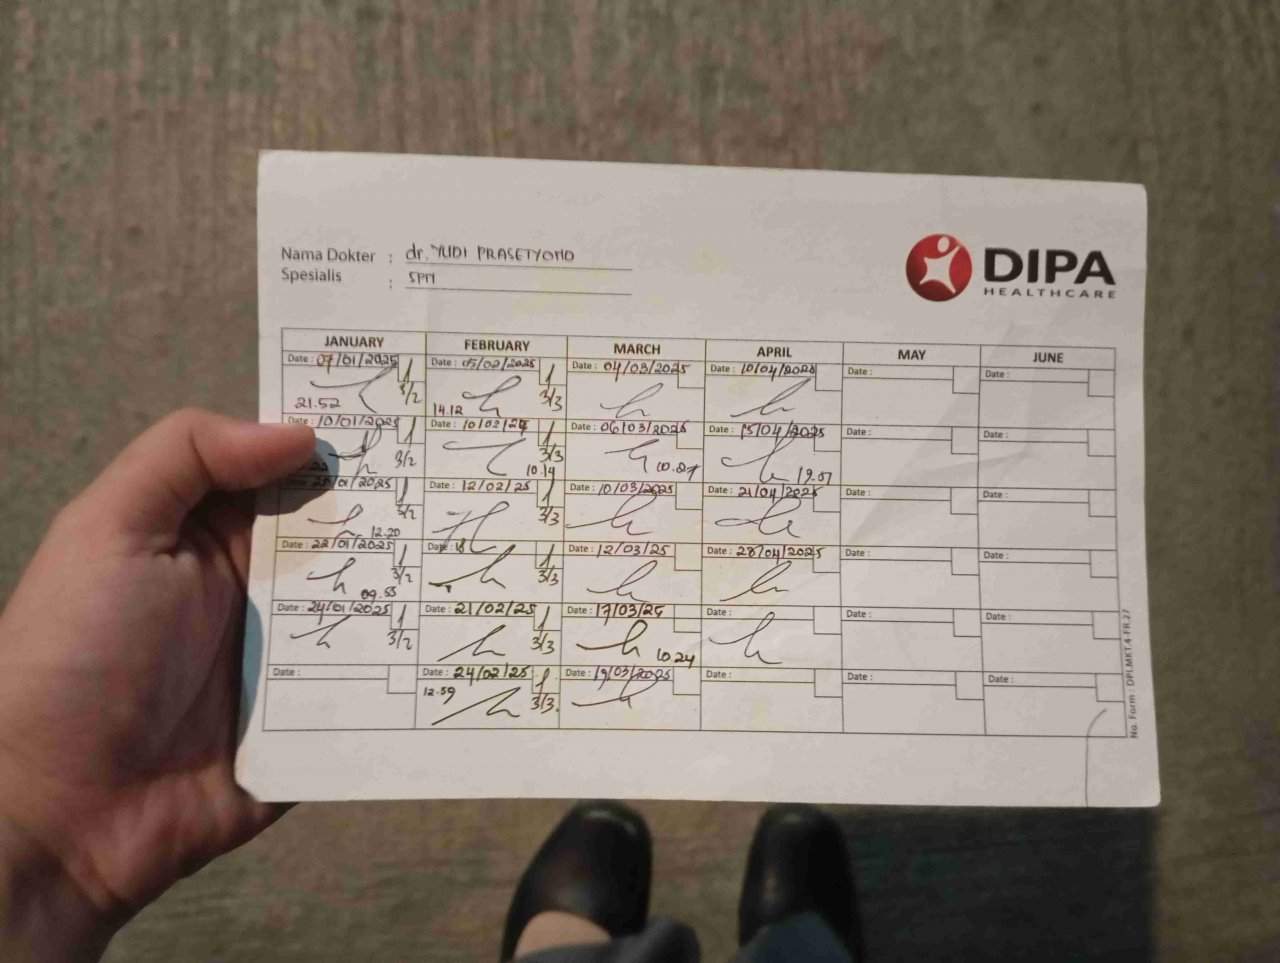 Nama Dokter : dr. YUDI PRASETYOMO
Spesialis : SPM
DIPA
HEALTHCARE
JANUARY FEBRUARY MARCH APRIL MAY JUNE
Date : 07/01/2025 Date : 05/02/2025 Date : 04/03/2025 Date : 10/04/2025 Date : Date :
21.52 3/2 14.12 3/3
10/01/2025 Date : 10/02/25 Date : 06/03/2025 Date : 15/04/2025 Date : Date :
3/2 10.14 3/3 19.07
/01/2025 Date : 12/02/25 Date : 10/03/2025 Date : 21/04/2025 Date : Date :
12.20 3/2 3/3
Date : 22/01/2025 Date : 18 Date : 12/03/25 Date : 28/04/2025 Date : Date :
09.55 3/2 3/3
Date : 24/01/2025 Date : 21/02/25 Date : 17/03/25 Date : Date : Date :
3/2 3/3 10.24
Date : Date : 24/02/25 Date : 19/03/2025 Date : Date : Date :
12.59 3/3.
No. Form : DPI.MKT.4-FR.27